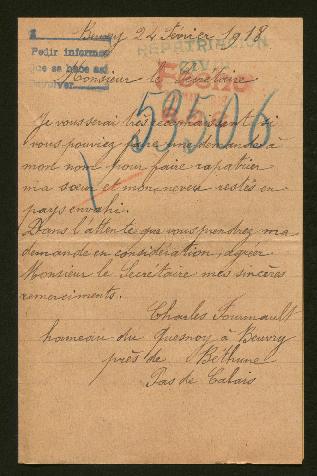 Beuvry 24 Février 1918
REPATRIATION
Pedir informes
que se hace así
Monsieur le Secrétaire
53506
Je vous serai très reconnaissant si
vous pouviez faire une demande à
mon nom pour faire rapatrier
ma sœur et mon neveu restés en
pays envahi.
Dans l'attente que vous prendrez ma
demande en considération, agréer
Monsieur le Secrétaire mes sincères
remerciments.
Charles Fourmault
hameau du Quesnoy à Beuvry
près de Béthune
Pas de Calais